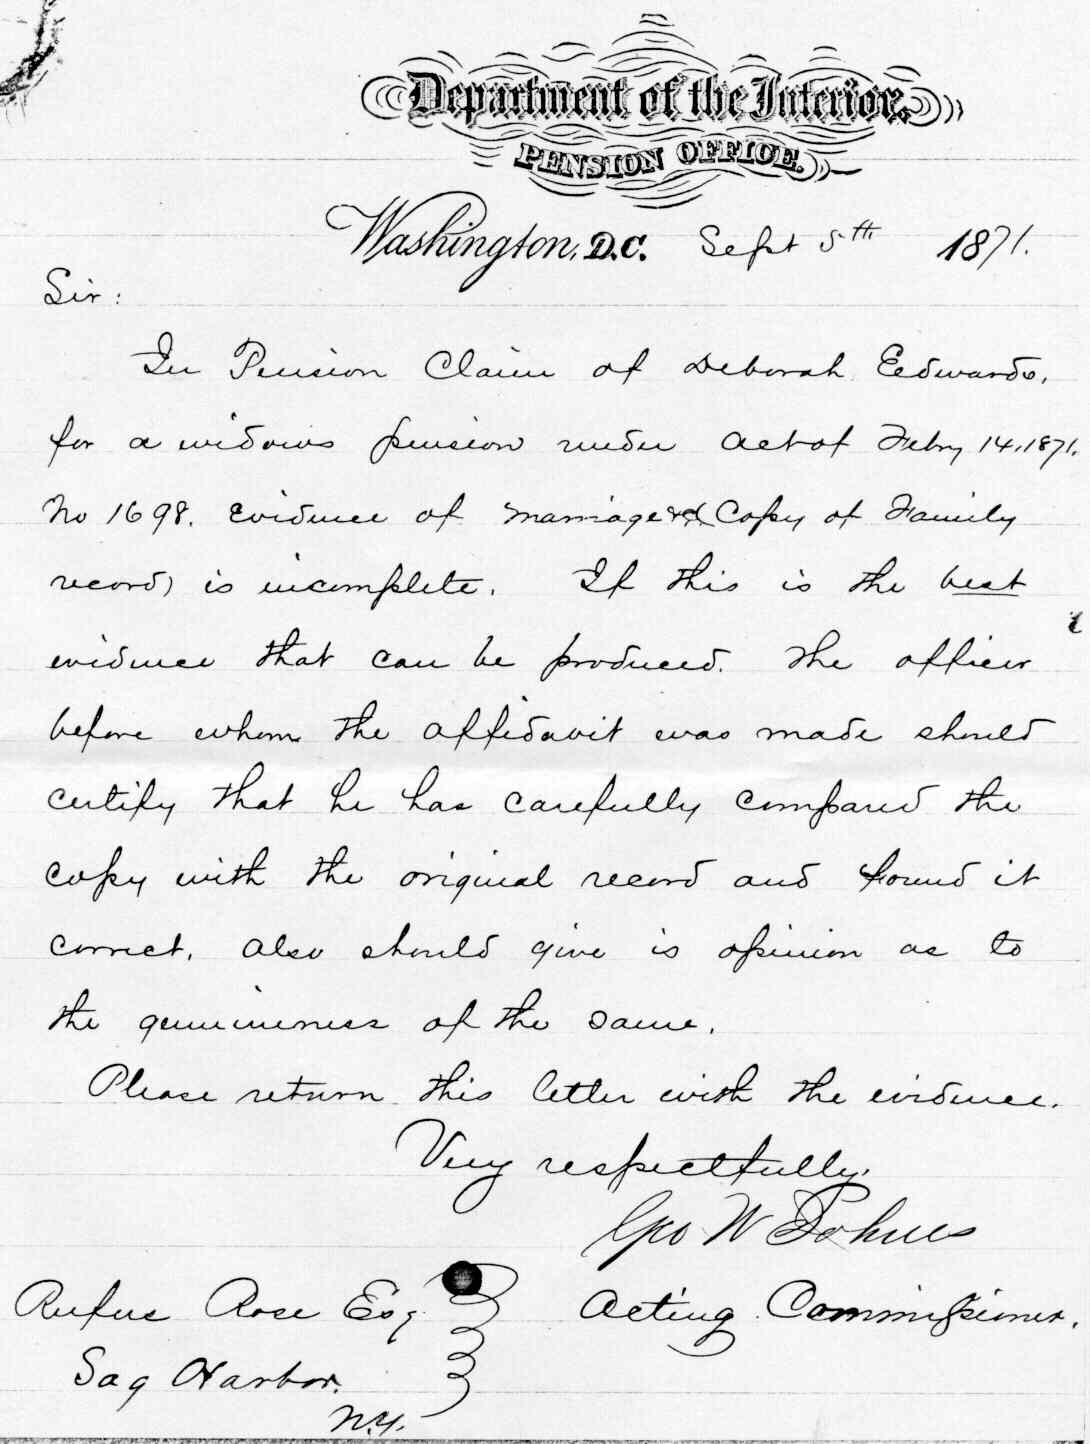 Department of the Interior.
PENSION OFFICE.
Washington, D.C. Sept 5th 1871.
Sir:
In Pension Claim of Deborah Eedwards,
for a widows pension under act of Febry 14, 1871.
No 1698. Evidence of marriage Copy of Family
record) is incomplete. If this is the best
evidence that can be produced. The officer
before whom the affidavit was made should
certify that he has carefully compared the
copy with the original record and found it
correct. also should give is opinion as to
the genuineness of the same.
Please return this letter with the evidence.
Very respectfully.
Geo W
Acting Commissioner.
Rufus Rose Esq
Sag Harbor.
N.Y.